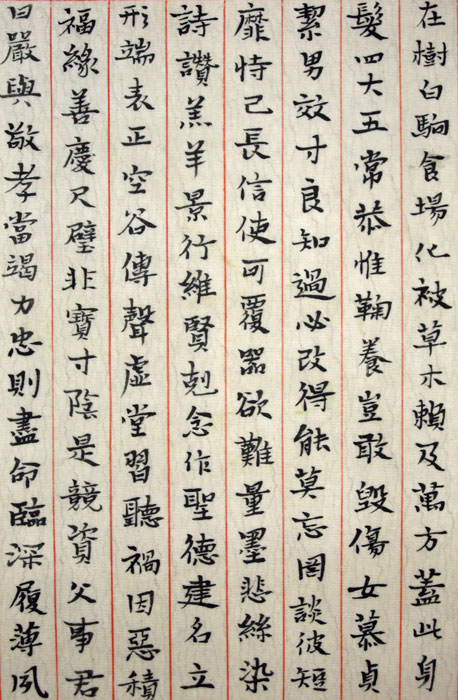 在樹白駒食場化被草木賴及萬方蓋此身
髮四大五常恭惟鞠養豈敢毀傷女慕貞
絜男效才良知過必改得能莫忘罔談彼短
靡恃己長信使可覆器欲難量墨悲絲染
詩讚羔羊景行維賢剋念作聖德建名立
形端表正空谷傳聲虛堂習聽禍因惡積
福緣善慶尺璧非寶寸陰是競資父事君
曰嚴與敬孝當竭力忠則盡命臨深履薄夙